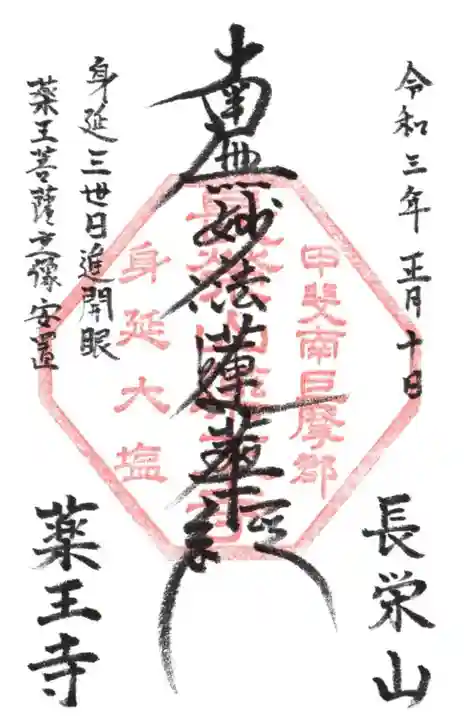 令和三年正月十日
長栄山
甲斐南巨摩郡
南無妙法蓮華経
身延大塩
身延三世日進開眼
薬王菩薩立像安置
薬王寺